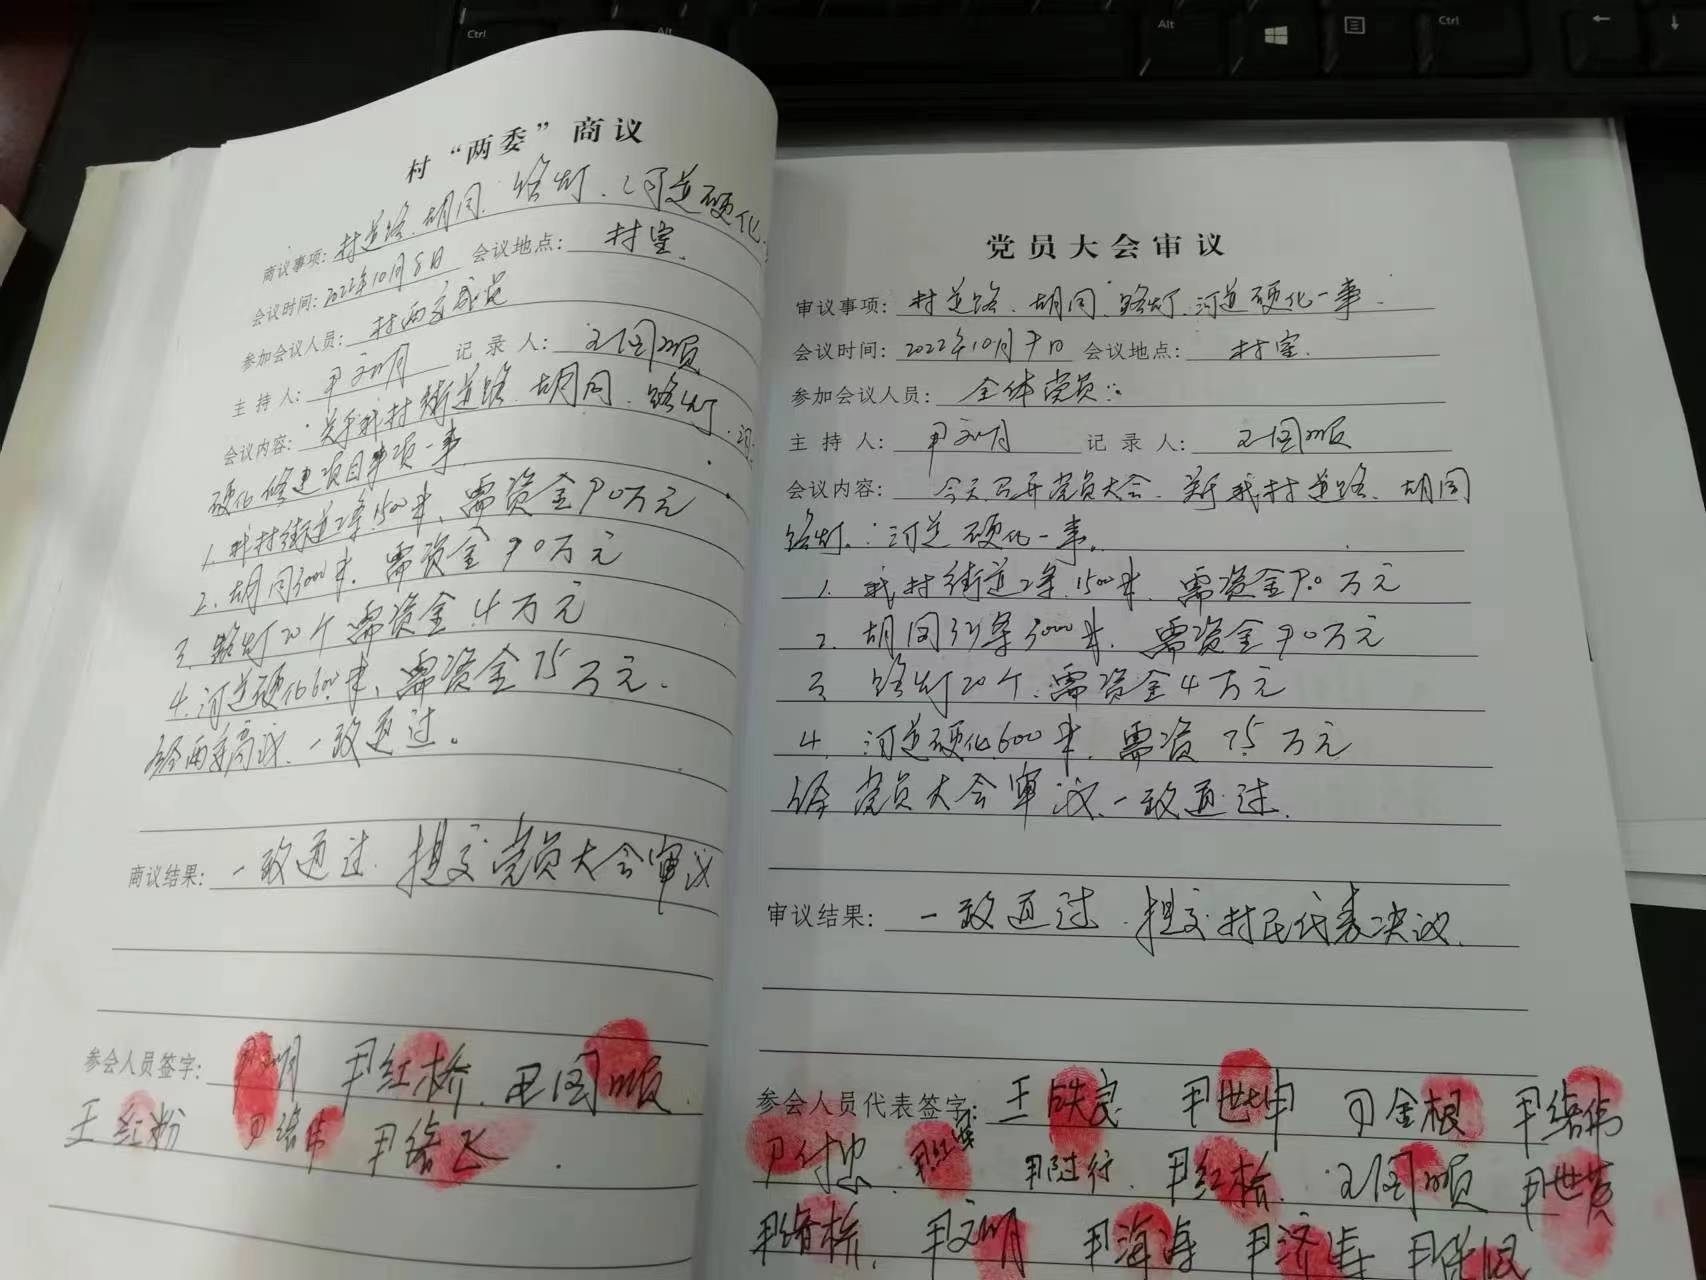 村“两委”商议
商议事项：村道路、胡同、路灯、河道硬化
会议时间：2022年10月8日 会议地点：村室
参加会议人员：村两委成员
主持人：尹文明 记录人：尹国顺
会议内容：关于我村街道路、胡同、路灯、河
硬化修建项目事项一事
1. 我村街道2条1500米、需资金90万元
2. 胡同3000米、需资金90万元
3. 路灯20个需资金4万元
4. 河道硬化600米、需资金75万元.
经两委商议、一致通过。
商议结果：一致通过. 提交党员大会审议
参会人员签字：尹文明 尹红桥. 尹国顺
王红粉 尹绪伟 尹绪飞
党员大会审议
审议事项：村道路、胡同、路灯、河道硬化一事.
会议时间：2022年10月9日 会议地点：村室.
参加会议人员：全体党员
主持人：尹文明 记录人：尹国顺
会议内容：今天召开党员大会、关于我村道路、胡同
路灯、河道硬化一事。
1. 我村街道2条、1500米、需资金90万元
2. 胡同条3000米、需资金90万元
3 路灯20个、需资金4万元
4. 河道硬化600米、需资75万元
经党员大会审议、一致通过.
审议结果：一致通过. 提交村民代表决议.
参会人员代表签字：王铁良 尹世坤 尹金根 尹绪伟
尹付忠 尹红 尹行. 尹红桥. 尹国顺 尹世英
尹绪桥. 尹文明 尹海涛 尹济 尹保